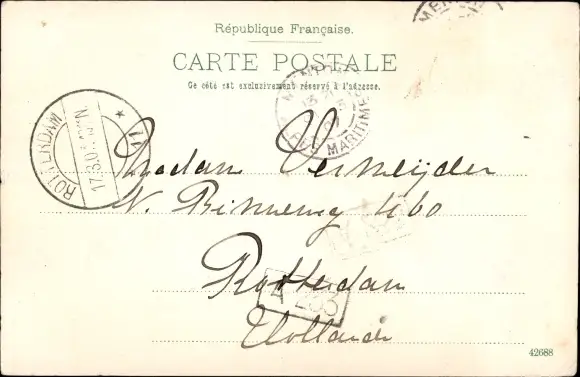 République Française.
CARTE POSTALE
Ce côté est exclusivement réservé à l'adresse.
ALPES MARITIMES
ROTTERDAM
Madam Vermeijden
N. Binnenweg 460
Rotterdam
Holland
42688